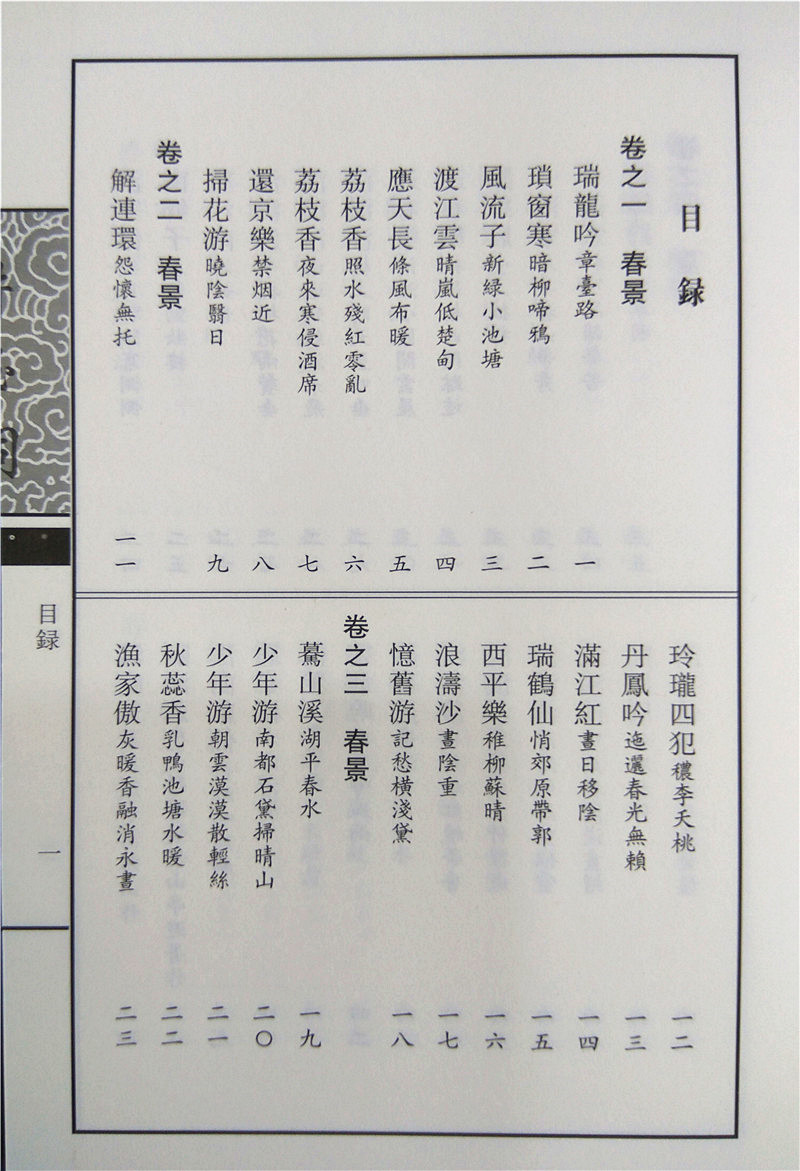 目録
卷之一 春景
瑞龍吟 章臺路 一
瑣窗寒 暗柳啼鴉 二
風流子 新綠小池塘 三
渡江雲 晴嵐低楚甸 四
應天長 條風布暖 五
荔枝香 照水殘紅零亂 六
荔枝香 夜來寒侵酒席 七
還京樂 禁烟近 八
掃花游 曉陰翳日 九
卷之二 春景
解連環 怨懷無托 一一
玲瓏四犯 穠李夭桃 一二
丹鳳吟 迤邐春光無賴 一三
滿江紅 晝日移陰 一四
瑞鶴仙 悄郊原帶郭 一五
西平樂 稚柳蘇晴 一六
浪濤沙 晝陰重 一七
憶舊游 記愁橫淺黛 一八
卷之三 春景
驀山溪 湖平春水 一九
少年游 南都石黛掃晴山 二〇
少年游 朝雲漠漠散輕絲 二一
秋蕊香 乳鴨池塘水暖 二二
漁家傲 灰暖香融消永晝 二三
目録
一